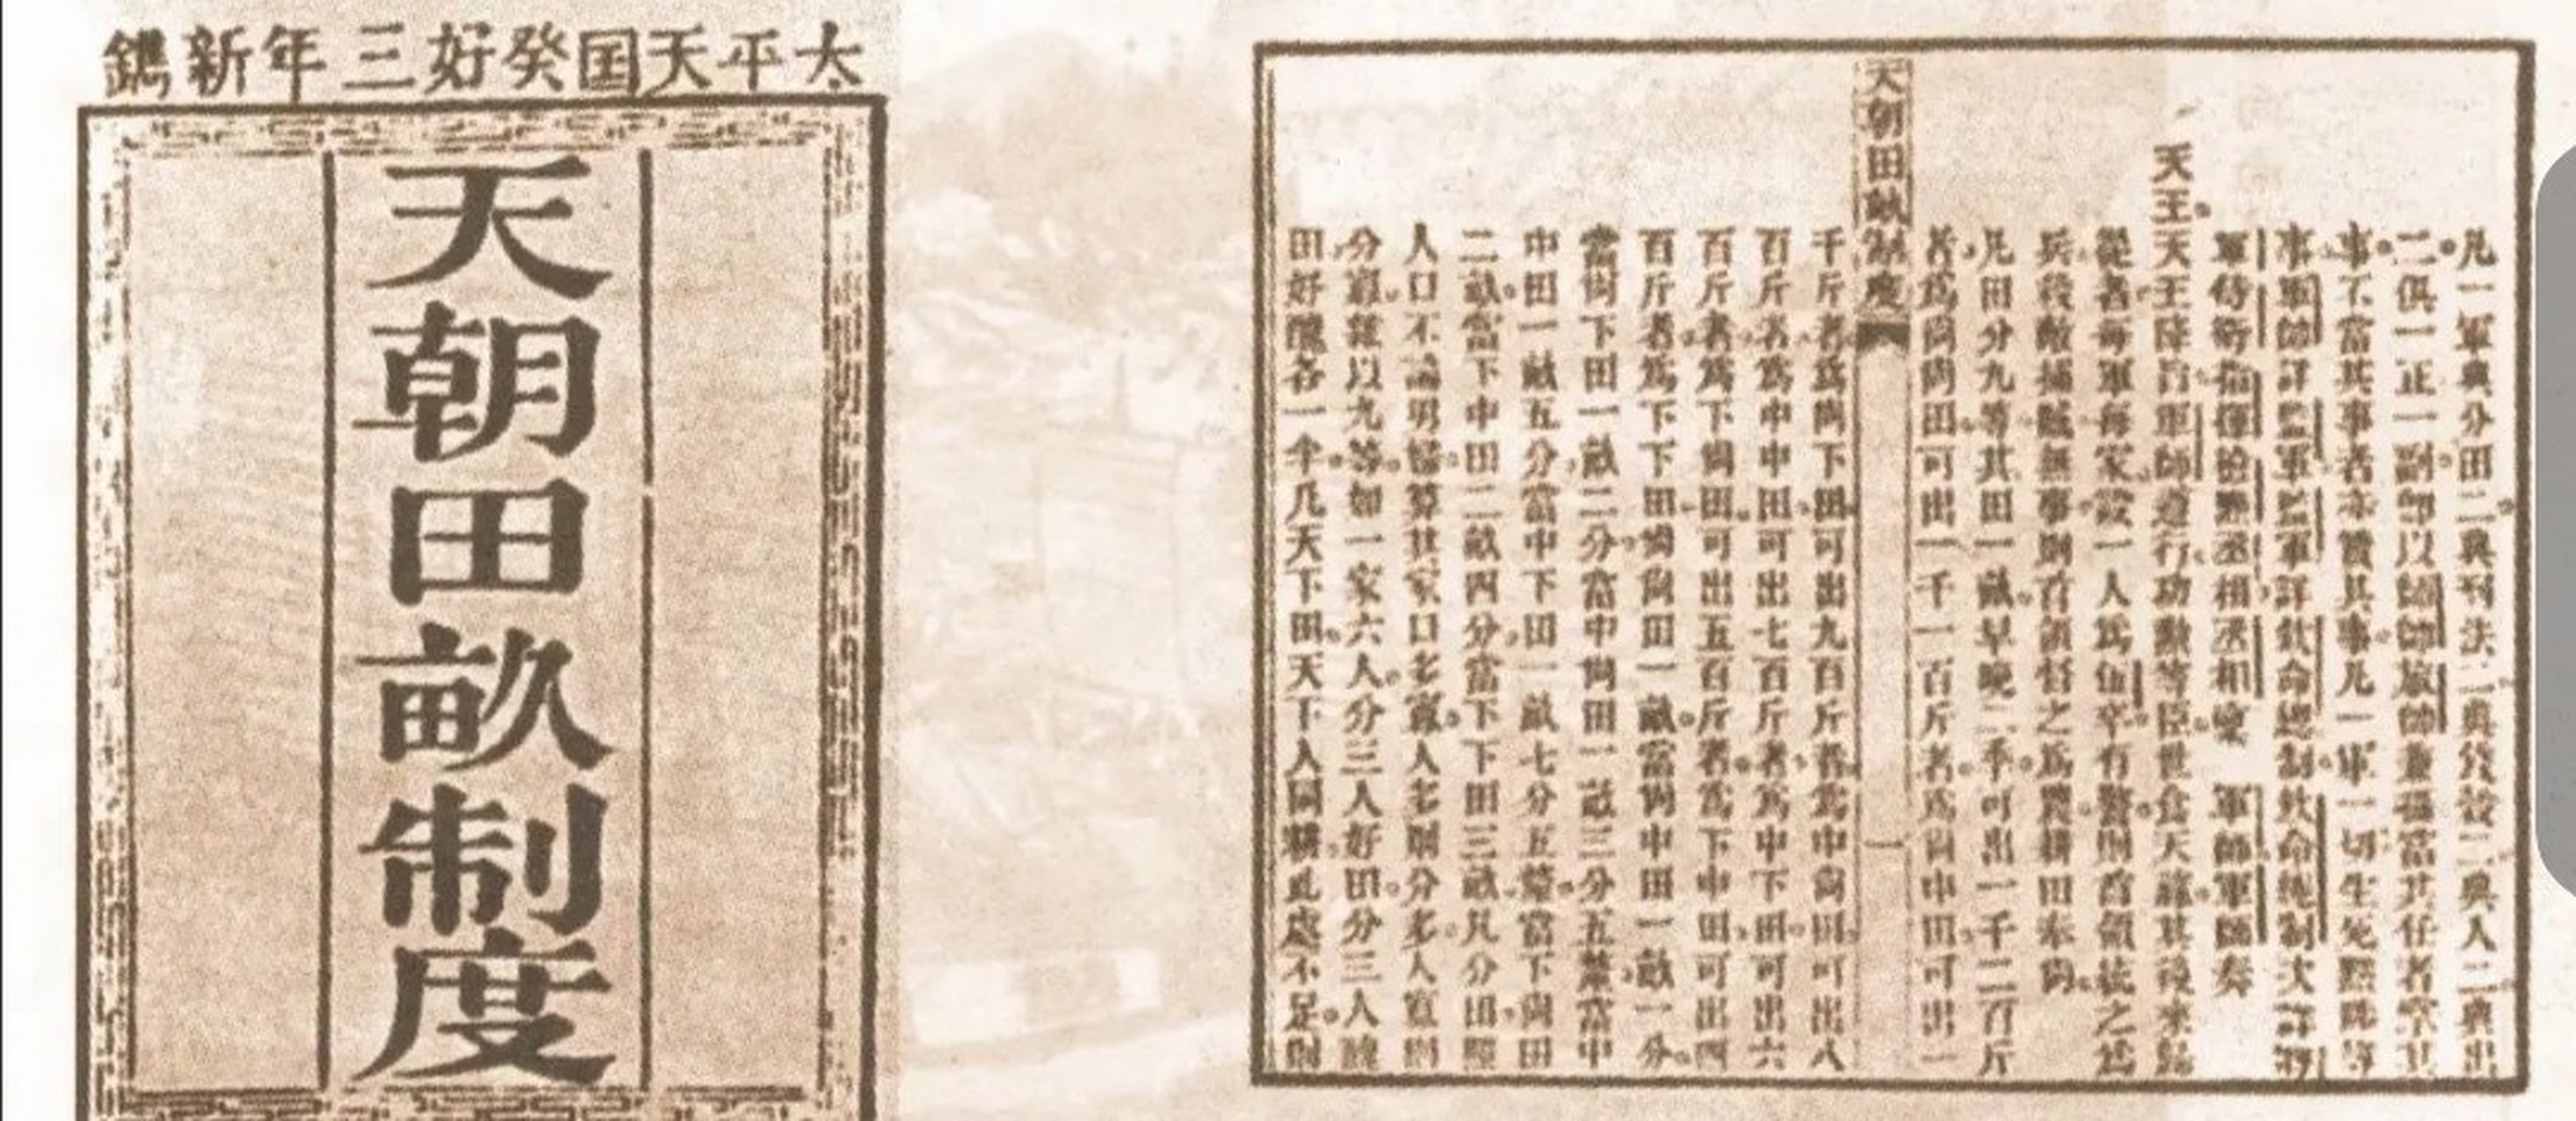 太平天囯癸好三年新鐫
天朝田畝制度
凡一軍典分田二典刑法二典錢穀二典入二典出
二俱一正一副卽以師帥旅帥兼攝當其任者掌其
事不當其事者亦贊其事凡一軍一切生死黜陟等
事軍帥詳監軍監軍詳欽命總制欽命總制次詳將
軍侍衛指揮檢點丞相丞相稟 軍師軍師奏
天王天王降旨軍師遵行功勳等臣世食天祿其後來歸
從者每軍每家設一人爲伍卒有警則首領統之爲
兵殺敵捕賊無事則首領督之爲農耕田奉尙
凡田分九等其田一畝早晚二季可出一千二百斤
者爲尙尙田可出一千一百斤者爲尙中田可出一
天朝田畝制度 一
千斤者爲尙下田可出九百斤者爲中尙田可出八
百斤者爲中中田可出七百斤者爲中下田可出六
百斤者爲下尙田可出五百斤者爲下中田可出四
百斤者爲下下田尙尙田一畝當尙中田一畝一分
當尙下田一畝二分當中尙田一畝三分五釐當中
中田一畝五分當中下田一畝七分五釐當下尙田
二畝當下中田二畝四分當下下田三畝凡分田照
人口不論男婦算其家口多寡人多則分多人寡則
分寡雜以九等如一家六人分三人好田分三人醜
田好醜各一半凡天下田天下人同耕此處不足則